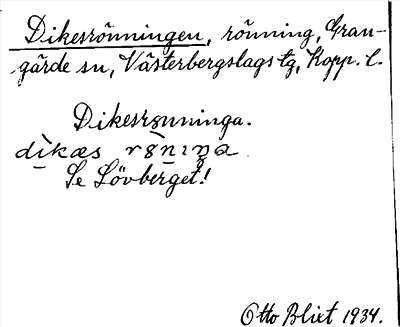 Dikesrönningen, rönning, Gran-
gärde sn, Västerbergslags tg, Kopp. l.
Dikesrønninga.
dikæs
Se Lövberget!
Otto Blixt 1934.